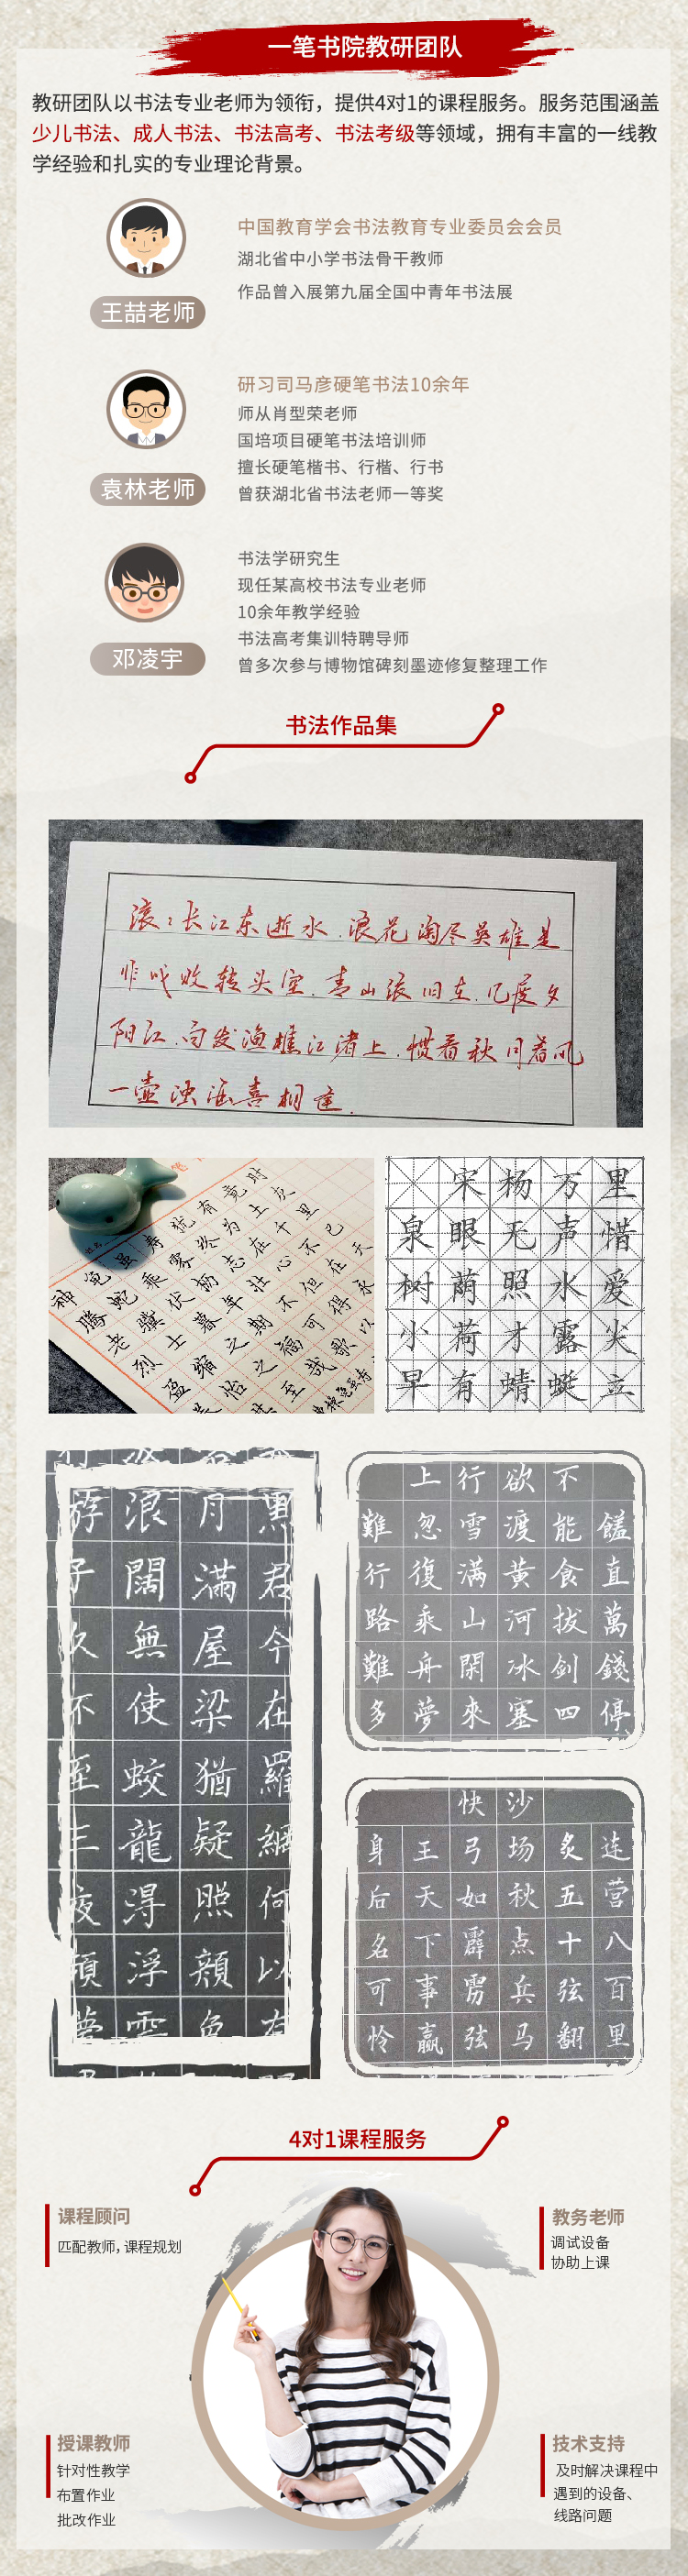 一笔书院教研团队
教研团队以书法专业老师为领衔，提供4对1的课程服务。服务范围涵盖
少儿书法、成人书法、书法高考、书法考级等领域，拥有丰富的一线教
学经验和扎实的专业理论背景。
中国教育学会书法教育专业委员会会员
湖北省中小学书法骨干教师
作品曾入展第九届全国中青年书法展
王喆老师
研习司马彦硬笔书法10余年
师从肖型荣老师
国培项目硬笔书法培训师
擅长硬笔楷书、行楷、行书
曾获湖北省书法老师一等奖
袁林老师
书法学研究生
现任某高校书法专业老师
10余年教学经验
书法高考集训特聘导师
曾多次参与博物馆碑刻墨迹修复整理工作
邓凌宇
书法作品集
滚滚长江东逝水.浪花淘尽英雄是
非成败转头空.青山依旧在.几度夕
阳红.白发渔樵江渚上.惯看秋月春风
一壶浊酒喜相逢.
神龟虽寿犹有竟时
腾蛇乘雾终为土灰
老骥伏枥志在千里
烈士暮年壮心不已
盈缩之期不但在天
养怡之福可得永
至哉歌以
宋杨万里
泉眼无声惜
树荫照水爱
小荷才露尖
早有蜻蜓立
游浪月黑
子阔满君
久無屋今
不使梁在
至蛟猶羅
三龍疑網
夜淂照何
頻浮顏以
夢雲色有
上行欲不
難忽雪渡能饈
行復满黄食直
路乘山河拔萬
難舟閑冰剑錢
多夢來塞四停
快沙
身王弓场炙连
后天如秋五营
名下霹点十八
可事雳兵弦百
怜赢弦马翻里
4对1课程服务
课程顾问
匹配教师，课程规划
教务老师
调试设备
协助上课
授课教师
针对性教学
布置作业
批改作业
技术支持
及时解决课程中
遇到的设备、
线路问题